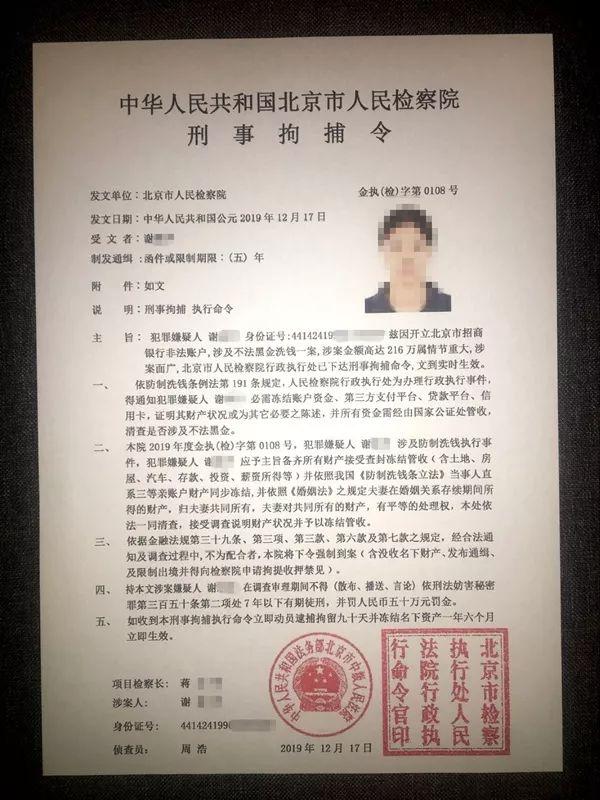 中华人民共和国北京市人民检察院
刑事拘捕令
发文单位:北京市人民检察院
金执(检)字第0108号
发文日期:中华人民共和国公元2019年12月17日
受 文 者:谢
制发通缉:函件或限制期限:(五)年
附　　件:如文
说　　明:刑事拘捕 执行命令
主　　旨:犯罪嫌疑人 谢 身份证号:44142419 兹因开立北京市招商
银行非法账户,涉及不法黑金洗钱一案,涉案金额高达216万属情节重大,涉
案面广,北京市人民检察院行政执行处已下达刑事拘捕命令,文到实时生效。
一、 依防制洗钱条例法第191条规定,人民检察院行政执行处为办理行政执行事件,
得通知犯罪嫌疑人 谢 必需冻结账户资金、第三方支付平台、贷款平台、信
用卡,证明其财产状况或为其它必要之陈述,并所有资金需经由国家公证处管收,
清查是否涉及不法黑金。
二、 本院2019年度金执(检)字第0108号,犯罪嫌疑人 谢 涉及防制洗钱执行事
件,犯罪嫌疑人 谢 应予主旨备齐所有财产接受查封冻结管收(含土地、房
屋、汽车、存款、投资、薪资所得等)并依照我国《防制洗钱条立法》当事人直
系三等亲账户财产同步冻结,并依照《婚姻法》之规定夫妻在婚姻关系存续期间所
得的财产,归夫妻共同所有,夫妻对共同所有的财产,有平等的处理权,本处依
法一同清查,接受调查说明财产状况并予以冻结管收。
三、 依据金融法规第三十九条、第三项、第三款、第六款及第七款之规定,经合法通
知及调查过程中,不为配合者,本院将下令强制到案(含没收名下财产、发布通缉、
及限制出境并得向检察院申请拘提收押禁见)。
四、 持本文涉案嫌疑人 谢 在调查审理期间不得(散布、播送、言论)依刑法妨害秘密
罪第三百五十条第二项处7年以下有期徒刑,并罚人民币五十万元罚金。
五、 如收到本刑事拘捕执行命令立即动员逮捕拘留九十天并冻结名下资产一年六个月
立即生效。
项目检察长: 蒋
涉案人: 谢
身份证号: 441424199
侦查员: 周 浩
2019年12月17日
中华人民共和国法务部北京市中级人民法院
北京市检察
执行处人民
法院行政执
行命令官印